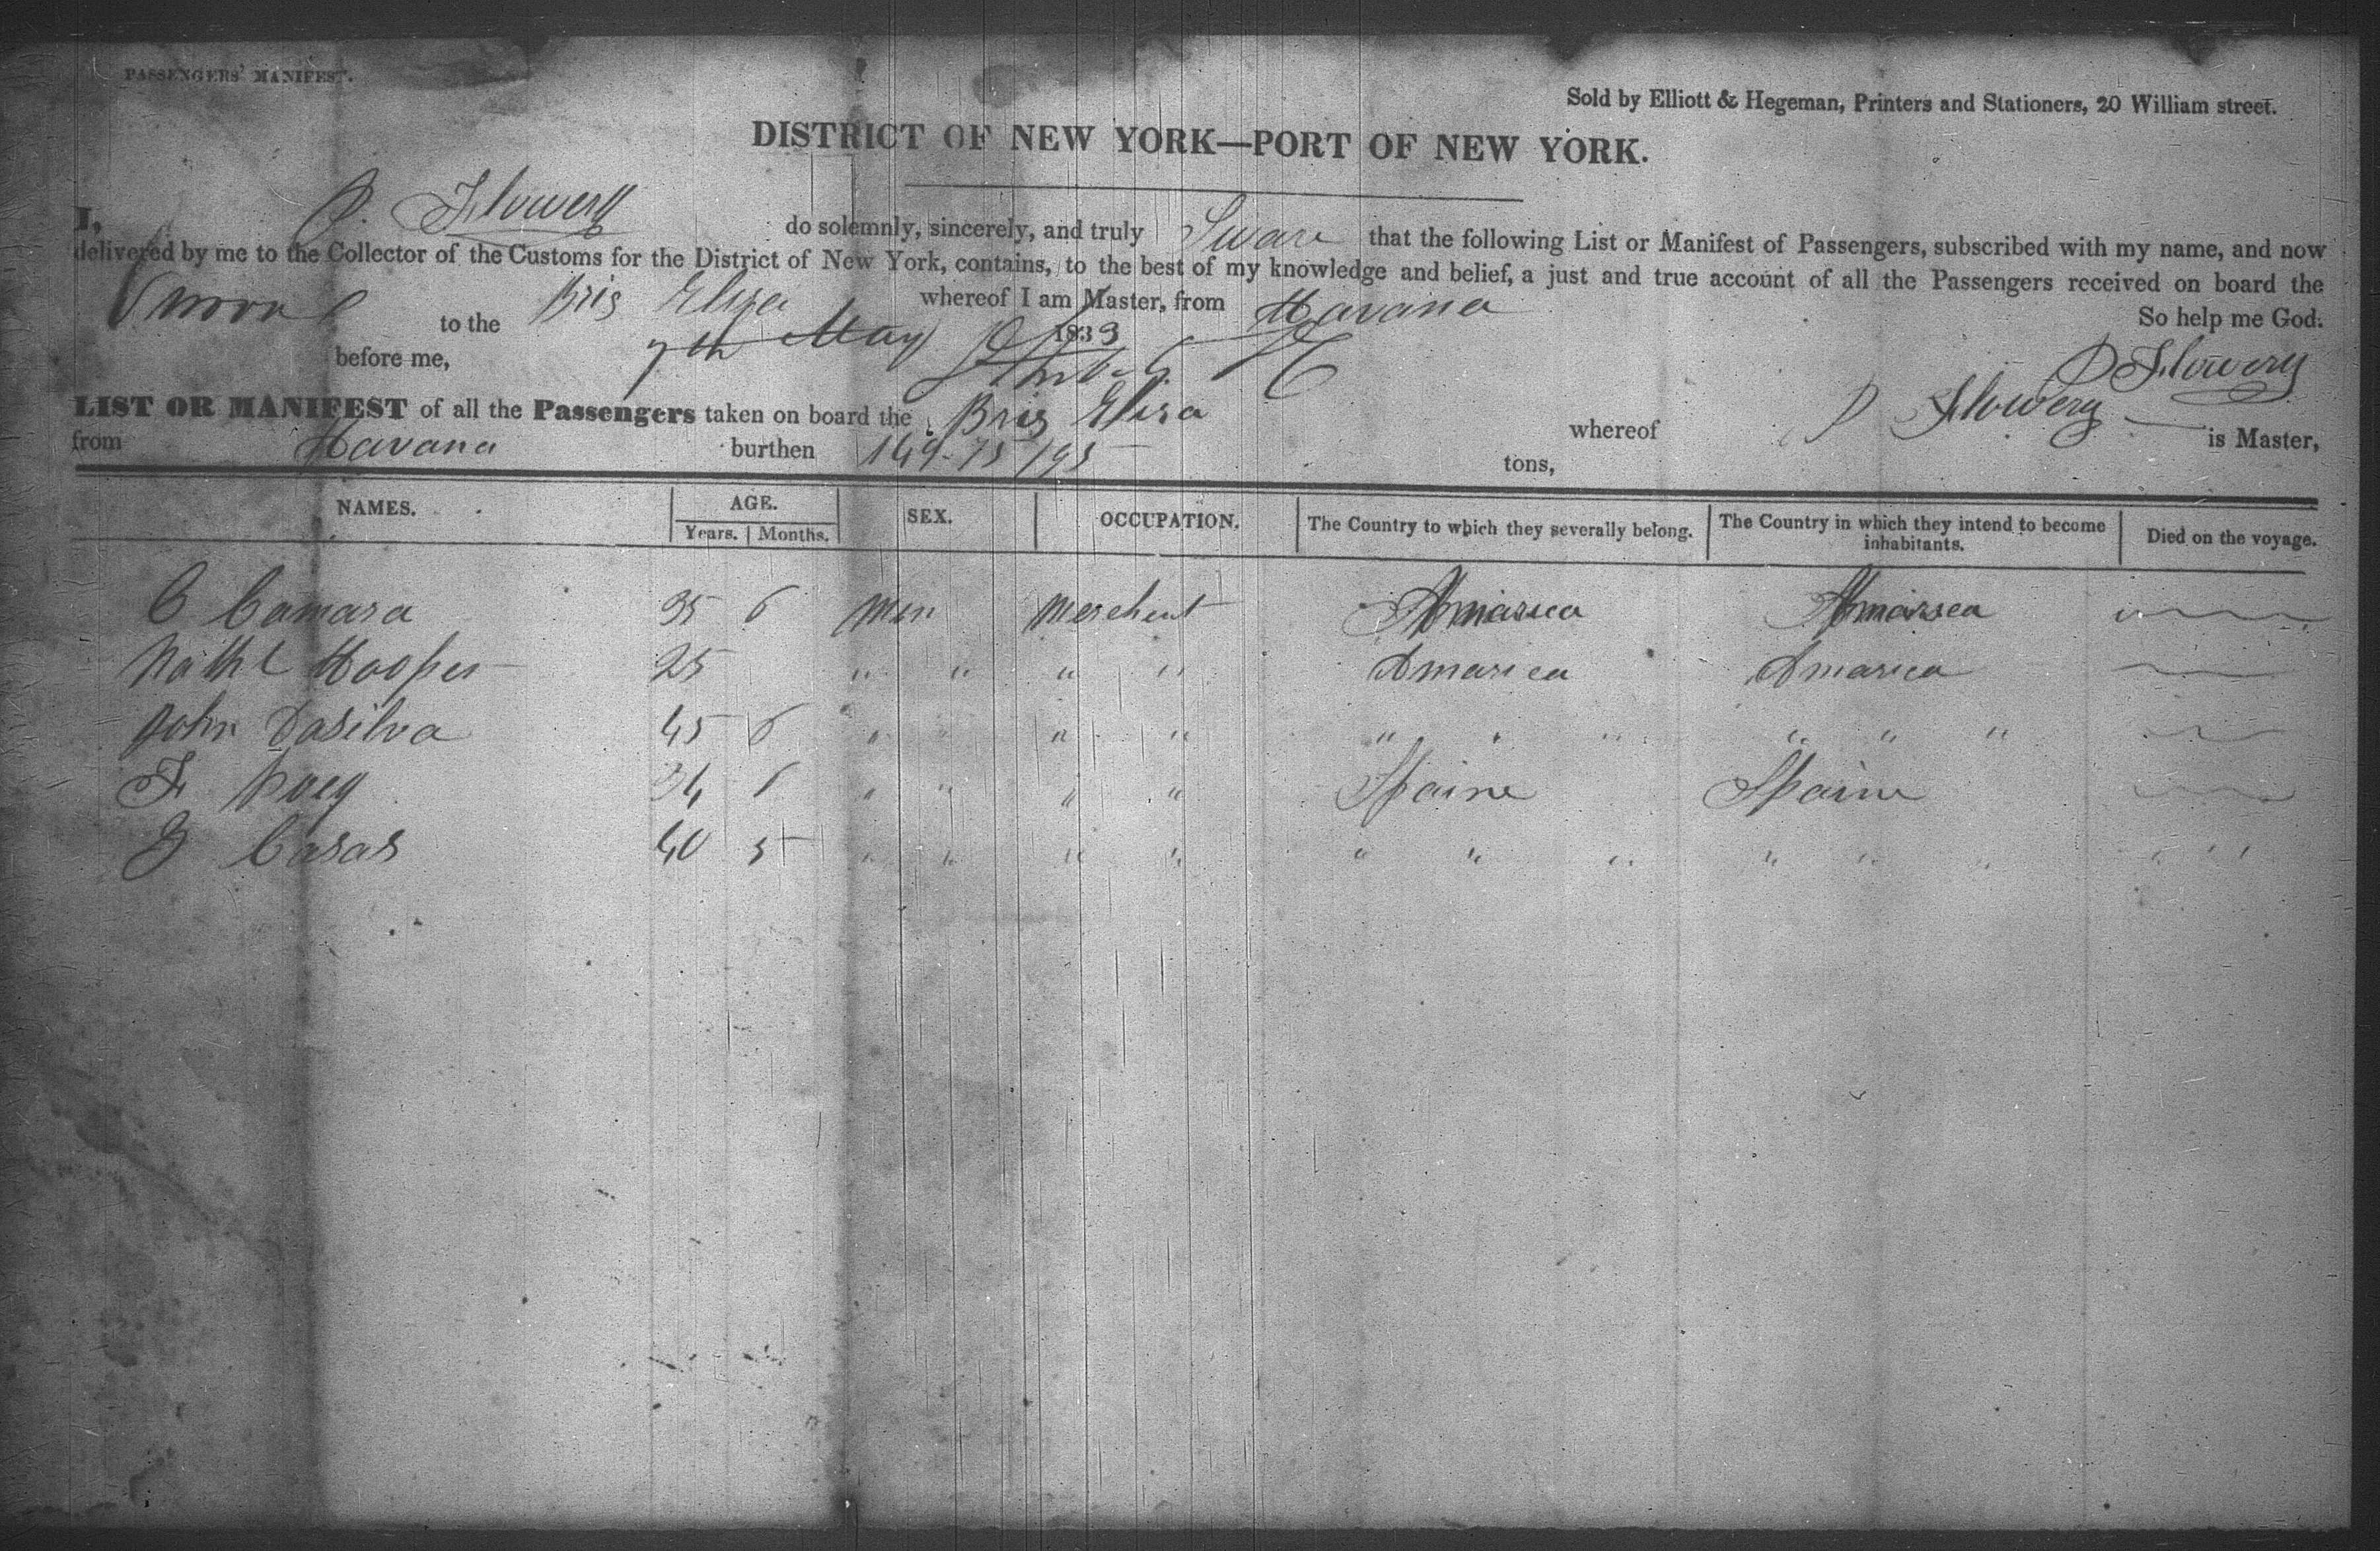 PASSENGERS' MANIFEST.
Sold by Elliott & Hegeman, Printers and Stationers, 20 William street.
DISTRICT OF NEW YORK—PORT OF NEW YORK.
I, Flowery do solemnly, sincerely, and truly Sware that the following List or Manifest of Passengers, subscribed with my name, and now
delivered by me to the Collector of the Customs for the District of New York, contains, to the best of my knowledge and belief, a just and true account of all the Passengers received on board the
Brig Eliza whereof I am Master, from Havana
to the 7th May 1839 So help me God.
before me, Flowery
LIST OR MANIFEST of all the Passengers taken on board the Brig Eliza whereof Flowery is Master,
from Havana burthen 149-75/95 tons,
NAMES. AGE. SEX. OCCUPATION. The Country to which they severally belong. The Country in which they intend to become inhabitants. Died on the voyage.
Years. Months.
C Camara 35 6 Men Merchent Amarica Amarica
Nathl Hooper 25 " " " " Amarica Amarica
John Dasilva 45 6 " " " " " " " " " "
F 34 " " " " Spaine Spaine
Casas 40 5 " " " " " " " " " " " " "